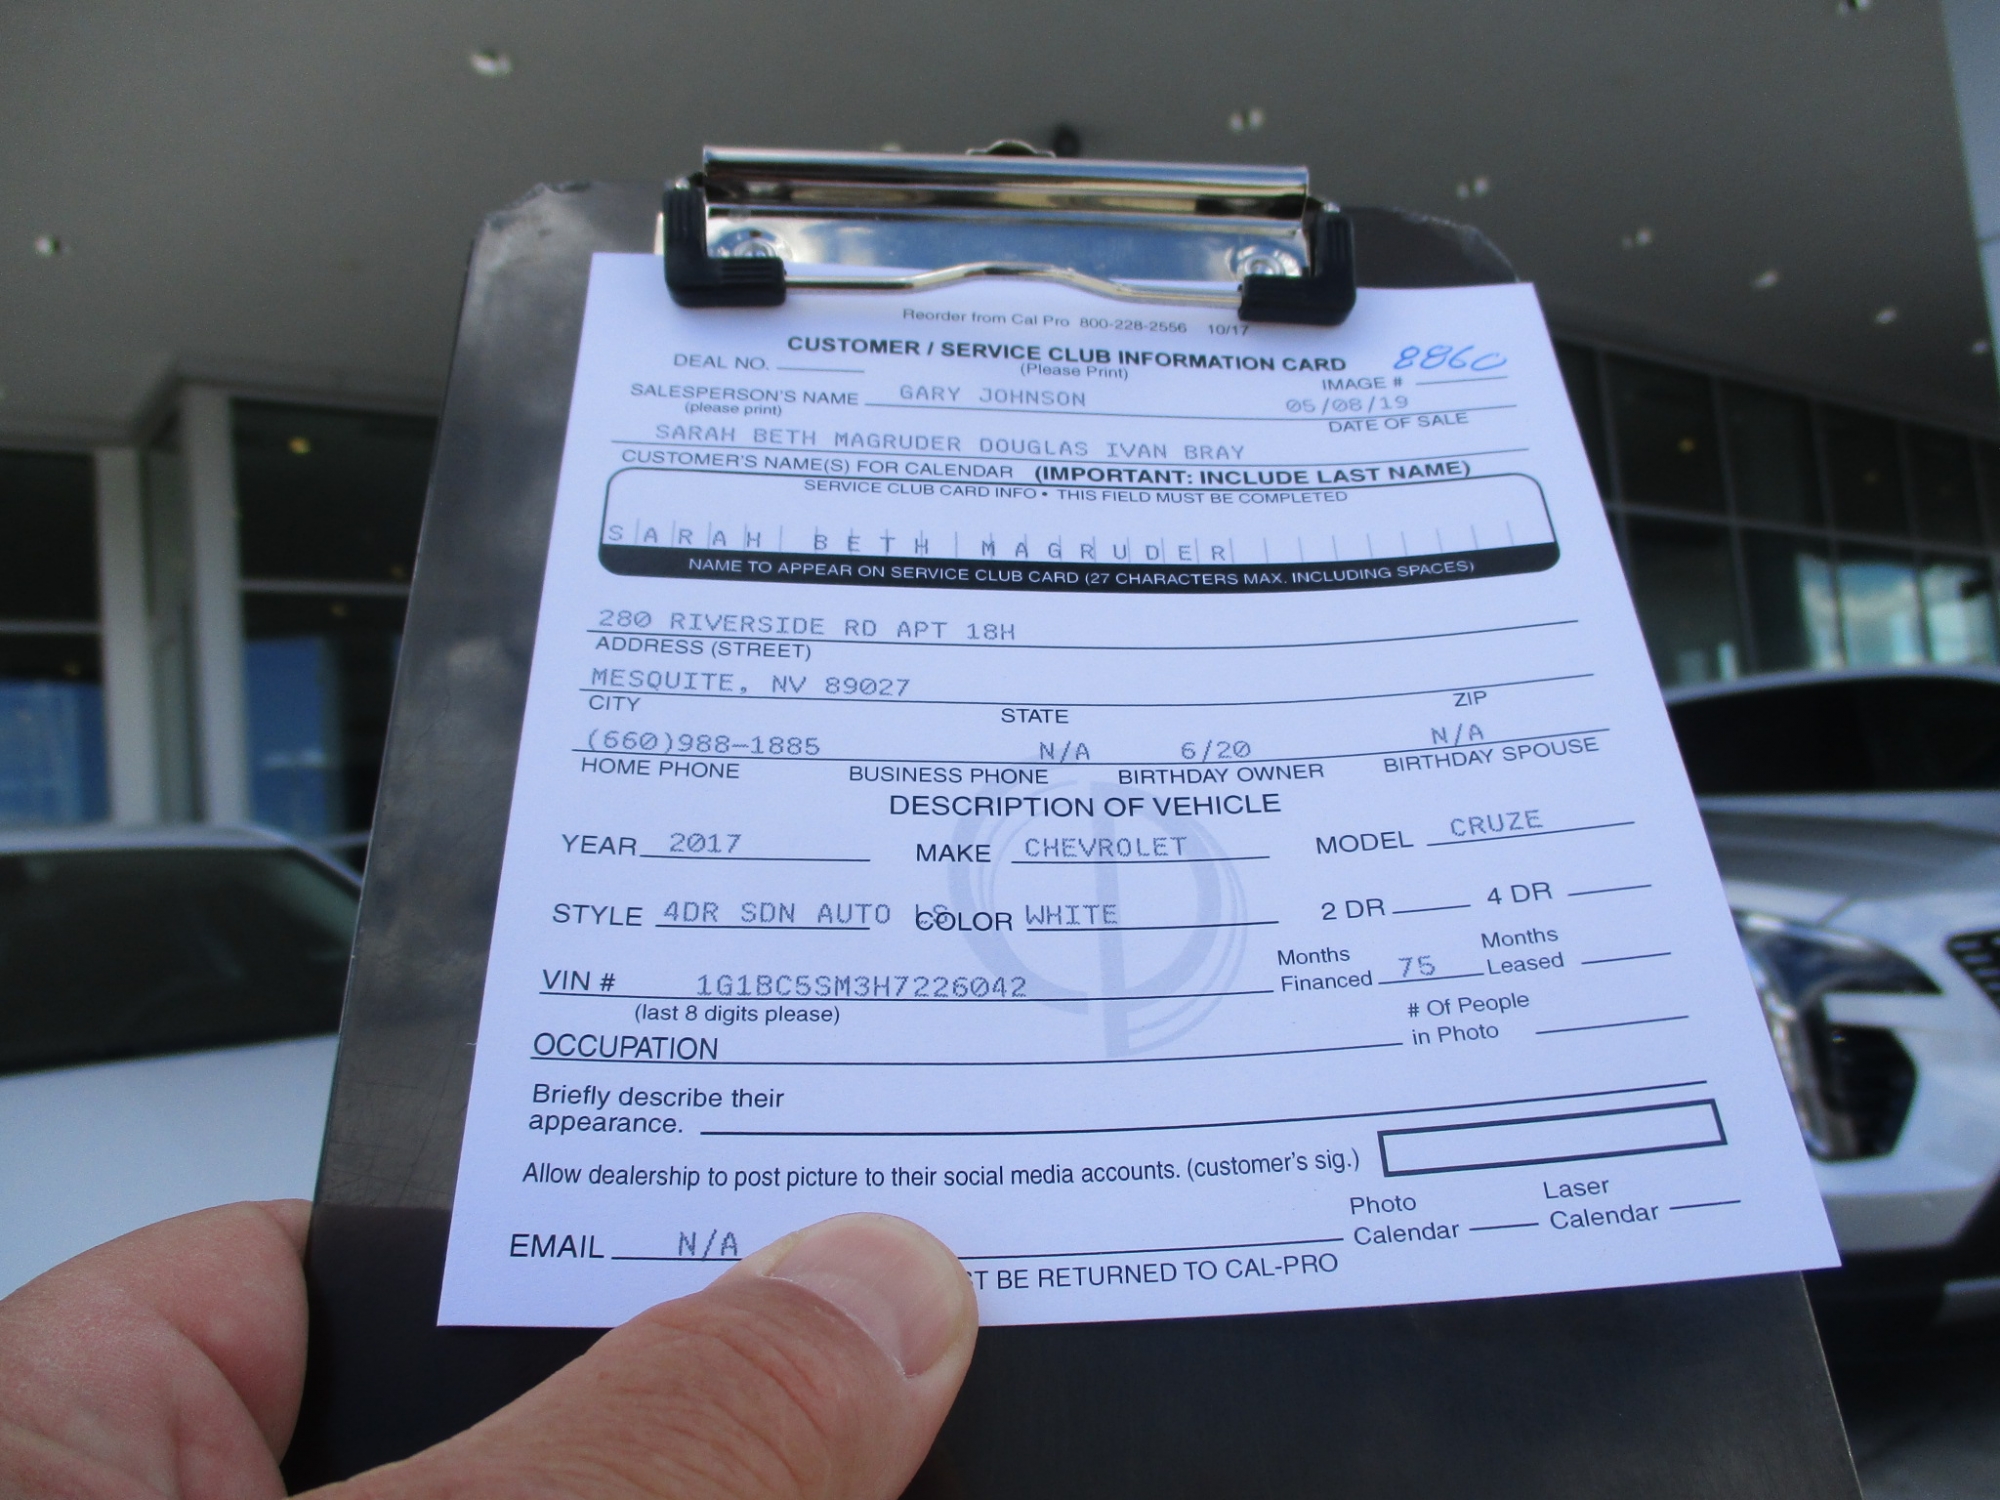 Reorder from Cal Pro 800-228-2556 10/17
CUSTOMER / SERVICE CLUB INFORMATION CARD 8860
DEAL NO. (Please Print) IMAGE #
SALESPERSON'S NAME GARY JOHNSON 05/08/19
(please print) DATE OF SALE
SARAH BETH MAGRUDER DOUGLAS IVAN BRAY
CUSTOMER'S NAME(S) FOR CALENDAR (IMPORTANT: INCLUDE LAST NAME)
SERVICE CLUB CARD INFO • THIS FIELD MUST BE COMPLETED
SARAH BETH MAGRUDER
NAME TO APPEAR ON SERVICE CLUB CARD (27 CHARACTERS MAX. INCLUDING SPACES)
280 RIVERSIDE RD APT 18H
ADDRESS (STREET)
MESQUITE, NV 89027
CITY STATE ZIP
(660)988-1885 N/A 6/20 N/A
HOME PHONE BUSINESS PHONE BIRTHDAY OWNER BIRTHDAY SPOUSE
DESCRIPTION OF VEHICLE
YEAR 2017 MAKE CHEVROLET MODEL CRUZE
STYLE 4DR SDN AUTO LS COLOR WHITE 2 DR 4 DR
VIN # 1G1BC5SM3H7226042 Months Financed 75 Months Leased
(last 8 digits please)
OCCUPATION # Of People in Photo
Briefly describe their
appearance.
Allow dealership to post picture to their social media accounts. (customer's sig.)
EMAIL N/A Photo Calendar Laser Calendar
BE RETURNED TO CAL-PRO